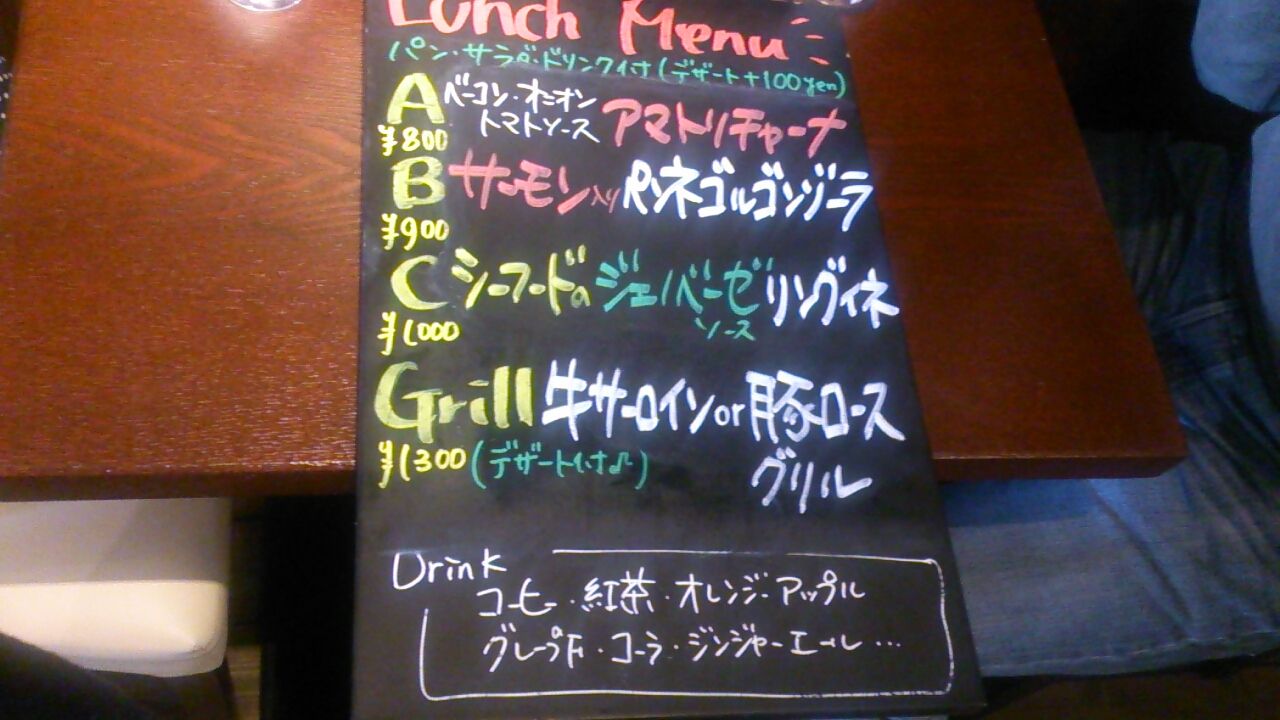 Lunch Menu
パン・サラダ・ドリンク付(デザート+100yen)
A ベーコン・オニオン
トマトソース アマトリチャーナ
¥800
B サーモン入り ペンネゴルゴンゾーラ
¥900
C シーフードの ジェノベーゼ リングイネ
ソース
¥1000
Grill 牛サーロイン or 豚ロース
グリル
¥1300 (デザート付♪)
Drink
コーヒー・紅茶・オレンジ・アップル
グレープF・コーラ・ジンジャーエール…